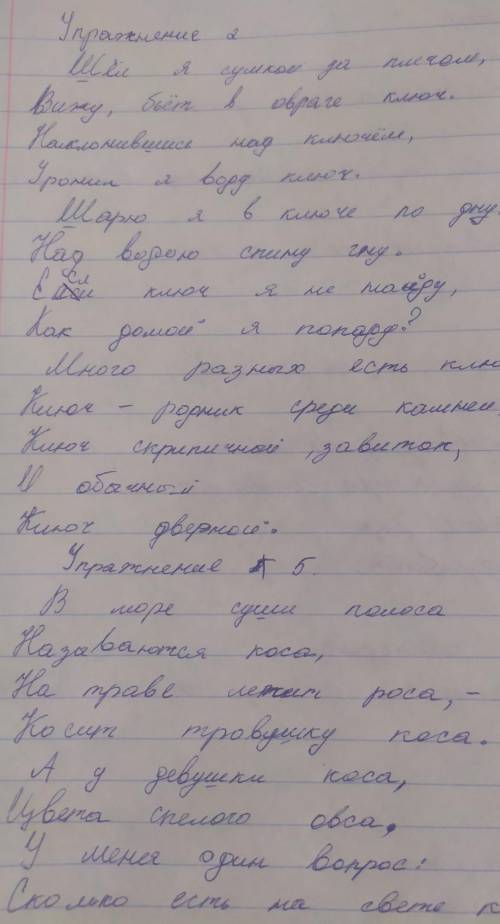 Упражнение 2
Шёл я сумкой за плечом,
Вижу, бьёт в овраге ключ.
Наклонившись над ключём,
Уронил я воду ключ.
Шарю я в ключе по дну.
Над водою спину гну.
ключ я не найду,
Как домой я попаду?
Много разных есть клю
Ключ – родник среди камней,
Ключ скрипичной, завиток,
И обычный
Ключ дверной.
Упражнение 5.
В море суши полоса
Называются коса,
На траве лежит роса, –
Косит травушку коса.
А у девушки коса,
Цвета спелого овса.
У меня один вопрос:
Сколько есть на свете к